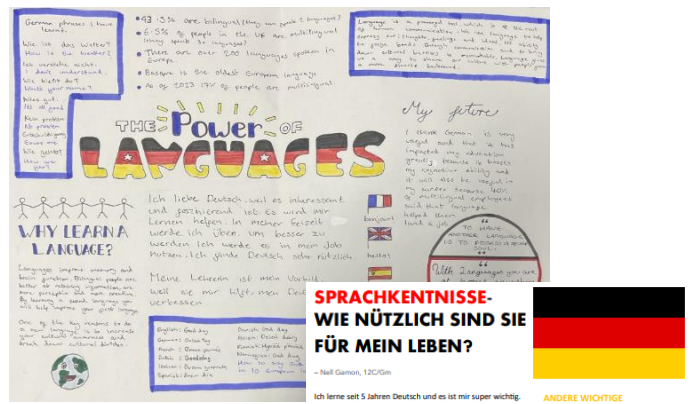 German phrases I have
learnt:
Wie ist das Wetter?
How is the weather?
Ich verstehe nicht.
I don't understand.
Wie heißt du?
What's your name?
Alles gut.
It's all good
Kein problem
No problem
Entschuldigung
Excuse me
Wie gehts?
How are
you?
are bilingual (they can speak 2 languages)
of people in the UK are multilingual
There are over 200 languages spoken in
Europe.
Basque is the oldest European language
of people are multilingual.
Language is a powerful tool, which is at the root
of human communication. We use language to help
THE Power OF
LANGUAGES
My future
I think German is very
useful and that it has
impacted my education
greatly, because it boosts
my cognitive ability and
it will also be useful in
my career because 40%
of multilingual employees
said that language
helped them
land a job.
WHY LEARN A
LANGUAGE?
Languages improve memory and
brain function. Bilingual people are
better at retaining information, are
more perceptive and more creative.
By learning a second language you
will help improve your first language
One of the key reasons to do
a new language is to increase
your cultural awareness and
break down cultural barriers.
Ich liebe Deutsch, weil es interessant
und faszinierend ist. Es wird mir
Lernen helfen. In meiner Freizeit
werde ich üben, um besser zu
werden. Ich werde es in mein Job
nutzen. Ich finde Deutsch sehr nützlich.
Meine Lehrerin ist mein Vorbild,
weil sie mir hilft, mein
verbessen
bonjour!
hello!
TO HAVE
ANOTHER LANGUAGE
IS TO POSSESS A
SOUL
With 2 languages you are
English: Good day
German: Guten Tag
Dutch: Goedendag
Danish: God dag
Polish: Dzień dobry
Norwegian: God dag
How to say
in 10 European
SPRACHKENTNISSE-
WIE NÜTZLICH SIND SIE
FÜR MEIN LEBEN?
– Nell Gamon, 12C/Gm
Ich lerne seit 5 Jahren Deutsch und es ist mir super wichtig.
ANDERE WICHTIGE